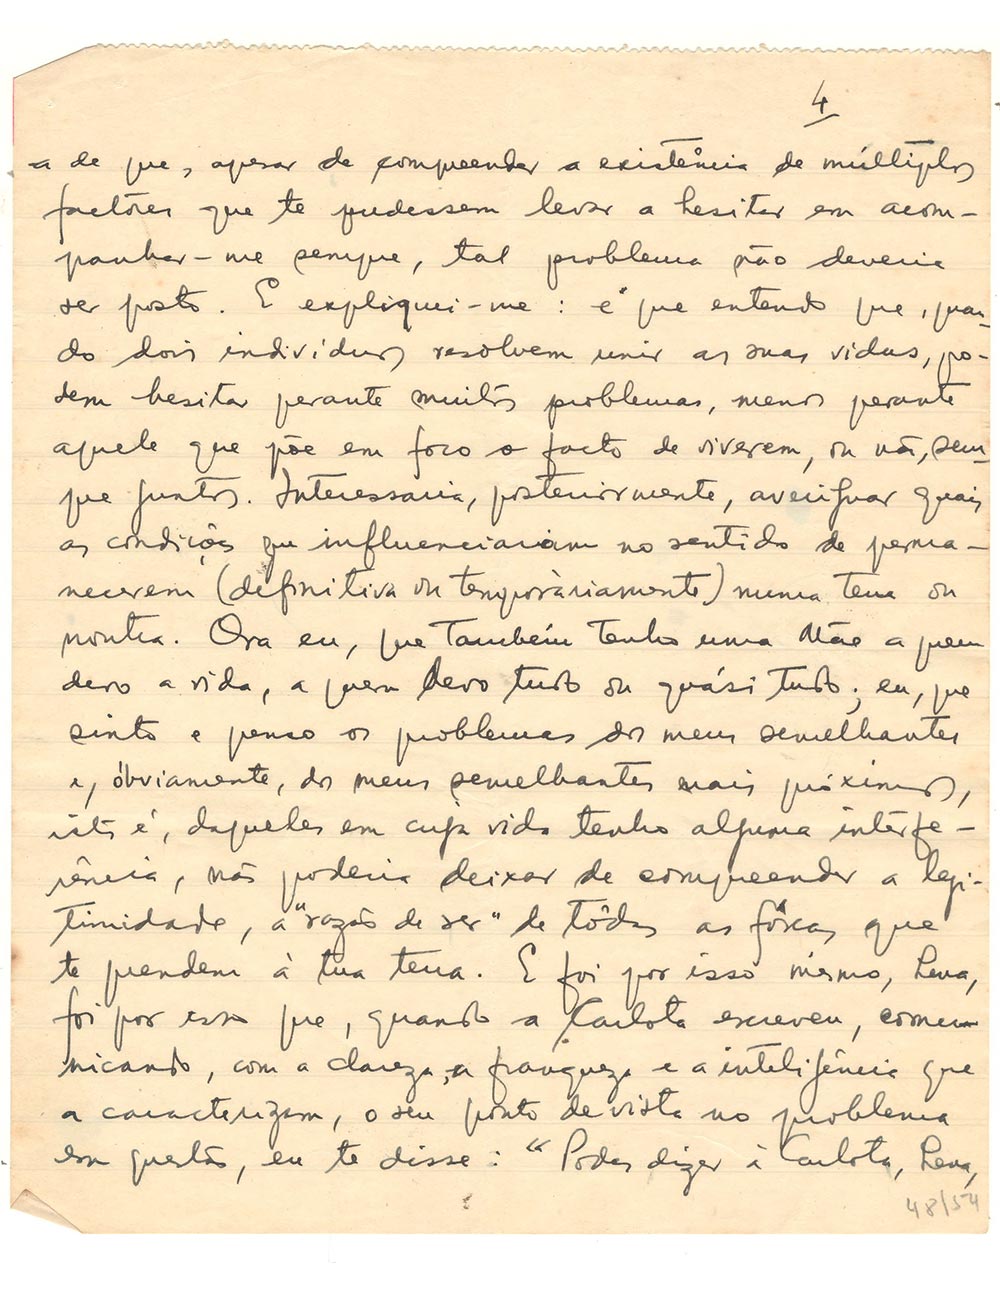 4
-a de que, apesar de compreender a existência de múltiplos
factôres que te pudessem levar a hesitar em acom-
panhar-me sempre, tal problema não deveria
ser posto. E expliquei-me: é que entendo que, quan-
do dois indivíduos resolvem unir as suas vidas, po-
dem hesitar perante muitos problemas, menos perante
aquele que põe em foco o facto de viverem, ou não, sem-
pre juntos. Interessaria, posteriormente, averiguar quais
as condições que influenciariam no sentido de perma-
necerem (definitiva ou temporàriamente) numa terra ou
noutra. Ora eu, que também tenho uma Mãe a quem
devo a vida, a quem devo tudo ou quási tudo; eu, que
sinto e penso os problemas dos meus semelhantes
e, óbviamente, dos meus semelhantes mais próximos,
isto é, daqueles em cuja vida tenho alguma interfe-
rência, não poderia deixar de compreender a legi-
timidade, a "razão de ser" de tôdas as fôrças que
te prendem à tua terra. E foi por isso mesmo, Lena,
foi por isso que, quando a Carlota escreveu, comu-
nicando, com a clareza, a franqueza e a inteligência que
a caracterizam, o seu ponto de vista no problema
em questão, eu te disse: "Podes dizer à Carlota, Lena,
48/54